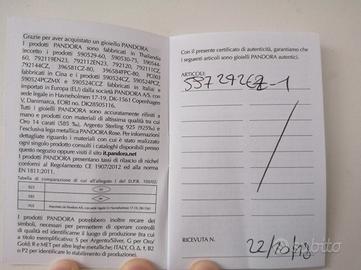 Grazie per aver acquistato un gioiello PANDORA.
I prodotti PANDORA sono fabbricati in Thailandia
(eccetto i prodotti 590529-60, 590530-75, 590544-
60, 792119EN23, 792112EN23, 792120, 792111CZ,
792144CZ, 396581CZ-80, 396584FPC-80, PG103
fabbricati in Cina e i prodotti 590524CZ, 590524PCZ,
590524CPZMX e 590523CZ fabbricati in Italia) e
importati in Europa (EU) dalla società PANDORA A/S, con
sede legale in Havneholmen 17-19, DK-1561 Copenhagen
V, Danimarca, EORI no. DK28505116.
Tutti i gioielli PANDORA sono accuratamente rifiniti a
mano e prodotti con materiali di altissima qualità tra cui
Oro 14 carati (585 ‰), Argento Sterling 925 (925‰) e
l'esclusiva lega metallica PANDORA Rose. Per informazioni
dettagliate riguardo i materiali con cui è stato realizzato
ogni singolo prodotto consulti i cataloghi disponibili presso
questo negozio oppure visiti il sito it.pandora.net
I prodotti PANDORA presentano tassi di rilascio di nichel
conformi al Regolamento CE 1907/2012 ed alla norma
EN 1811:2011.
Tabella di comparazione di cui all'allegato I del D.P.R. 150/02:
I prodotti PANDORA potrebbero inoltre recare dei
simboli, necessari per permettere di operare controlli
di qualità ed identificare il luogo di produzione (tra cui
a titolo esemplificativo: S per Argento/Silver, G per Oro/
Gold, R e MET per altre leghe metalliche, IT (Italia), CN
(Cina), P e P2.
Con il presente certificato di autenticità, garantiamo che
i seguenti articoli sono gioielli PANDORA autentici.
ARTICOLI:
RICEVUTA N.
22/10/18
subito